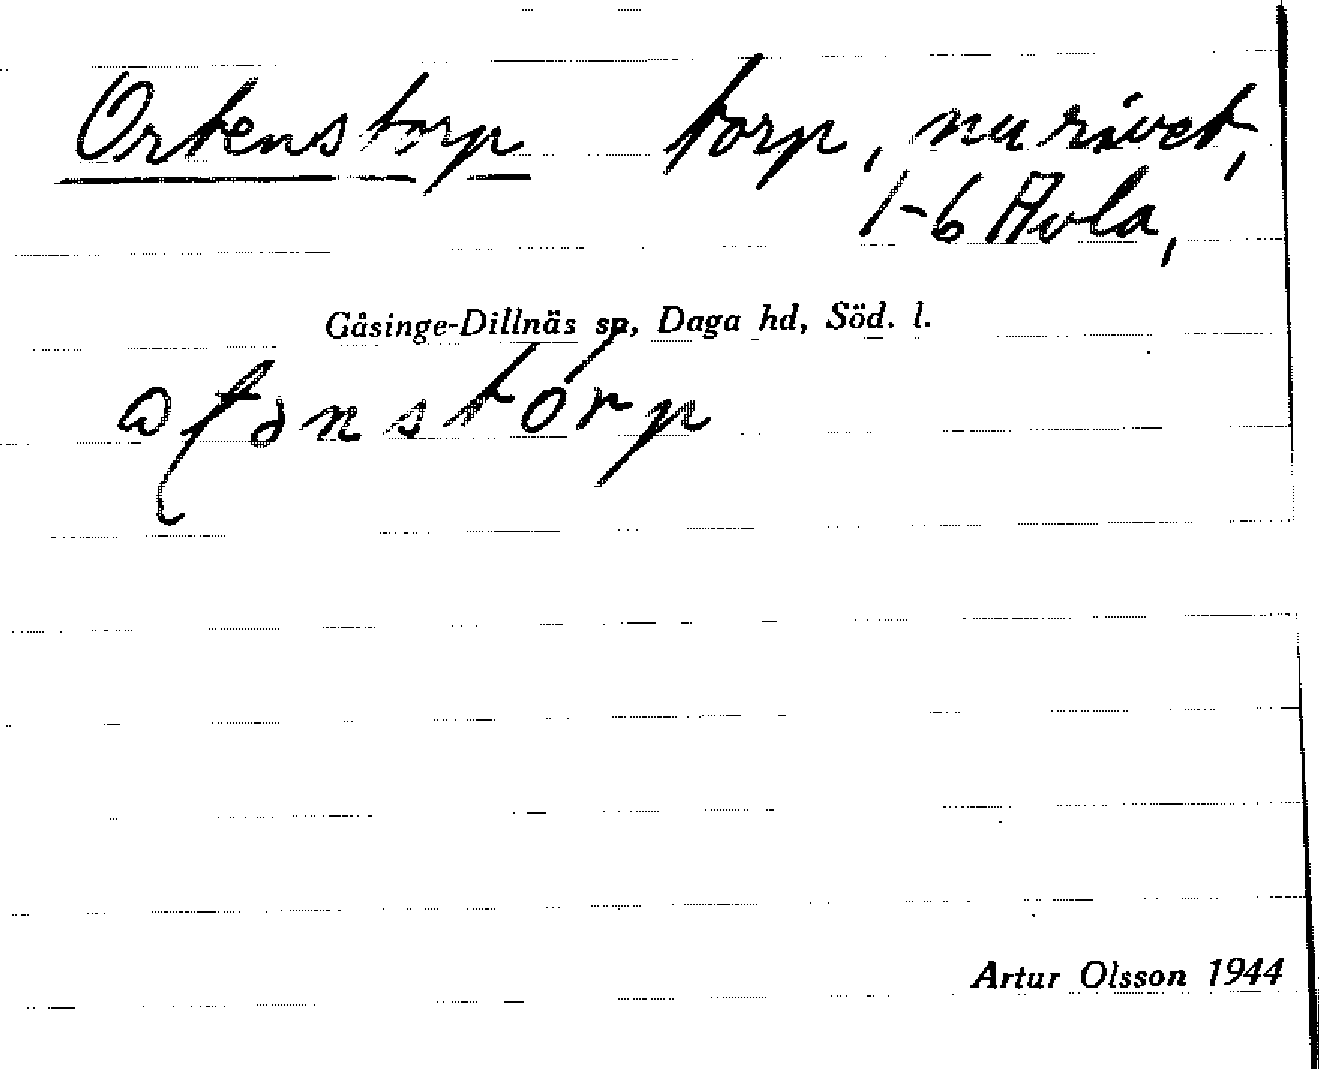 Ortenstorp torp, nu rivet,
1-6 Avla,
Gåsinge-Dillnäs sp, Daga hd, Söd. l.
Artur Olsson 1944